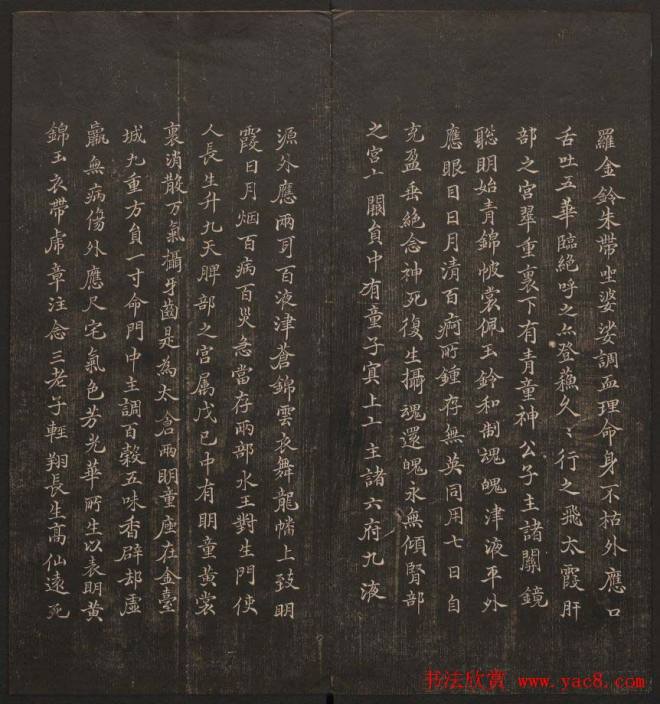 羅金鈴朱帶坐婆娑調血理命身不枯外應口
舌吐五華臨絕呼之亦登蘓久々行之飛太霞肝
部之宮翠重裏下有青童神公子主諸關鏡
聡明始青錦帔裳佩玉鈴和制魂魄津液平外
應眼目日月清百痾所鍾存無英同用七日自
充盈垂絕念神死復生攝魂還魄永無傾腎部
之宮玄闕貟中有童子冥上玄主諸六府九液
源外應兩耳百液津蒼錦雲衣舞龍幡上致明
霞日月烟百病百災急當存兩部水王對生門使
人長生升九天脾部之宮属戊己中有明童黃裳
裏消散万氣攝牙齒是為太倉兩明童座在金臺
城九重方貟一寸命門中主調百穀五味香辟却虛
羸無病傷外應尺宅氣色芳光華所生以表明黃
錦玉衣帶虎章注念三老子輕翔長生高仙遠死
书法欣赏 www.yac8.com